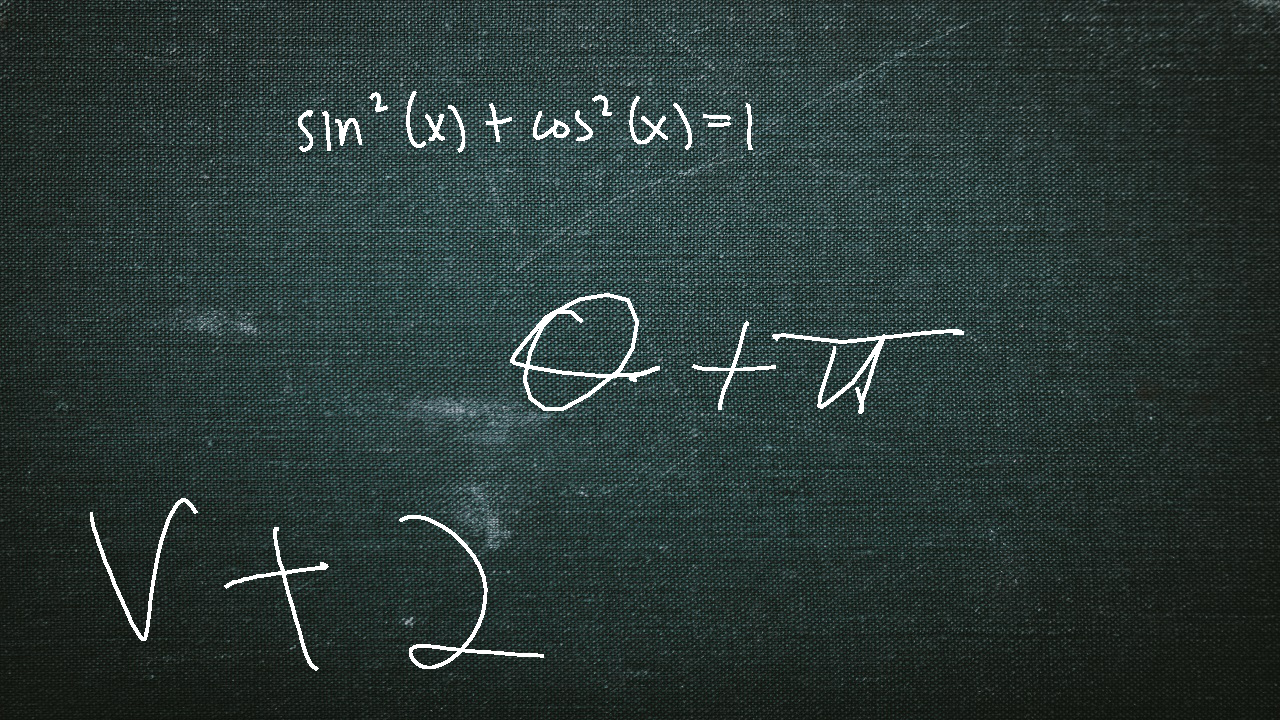 sin²(x) + cos²(x) = 1
θ + π
V + 2